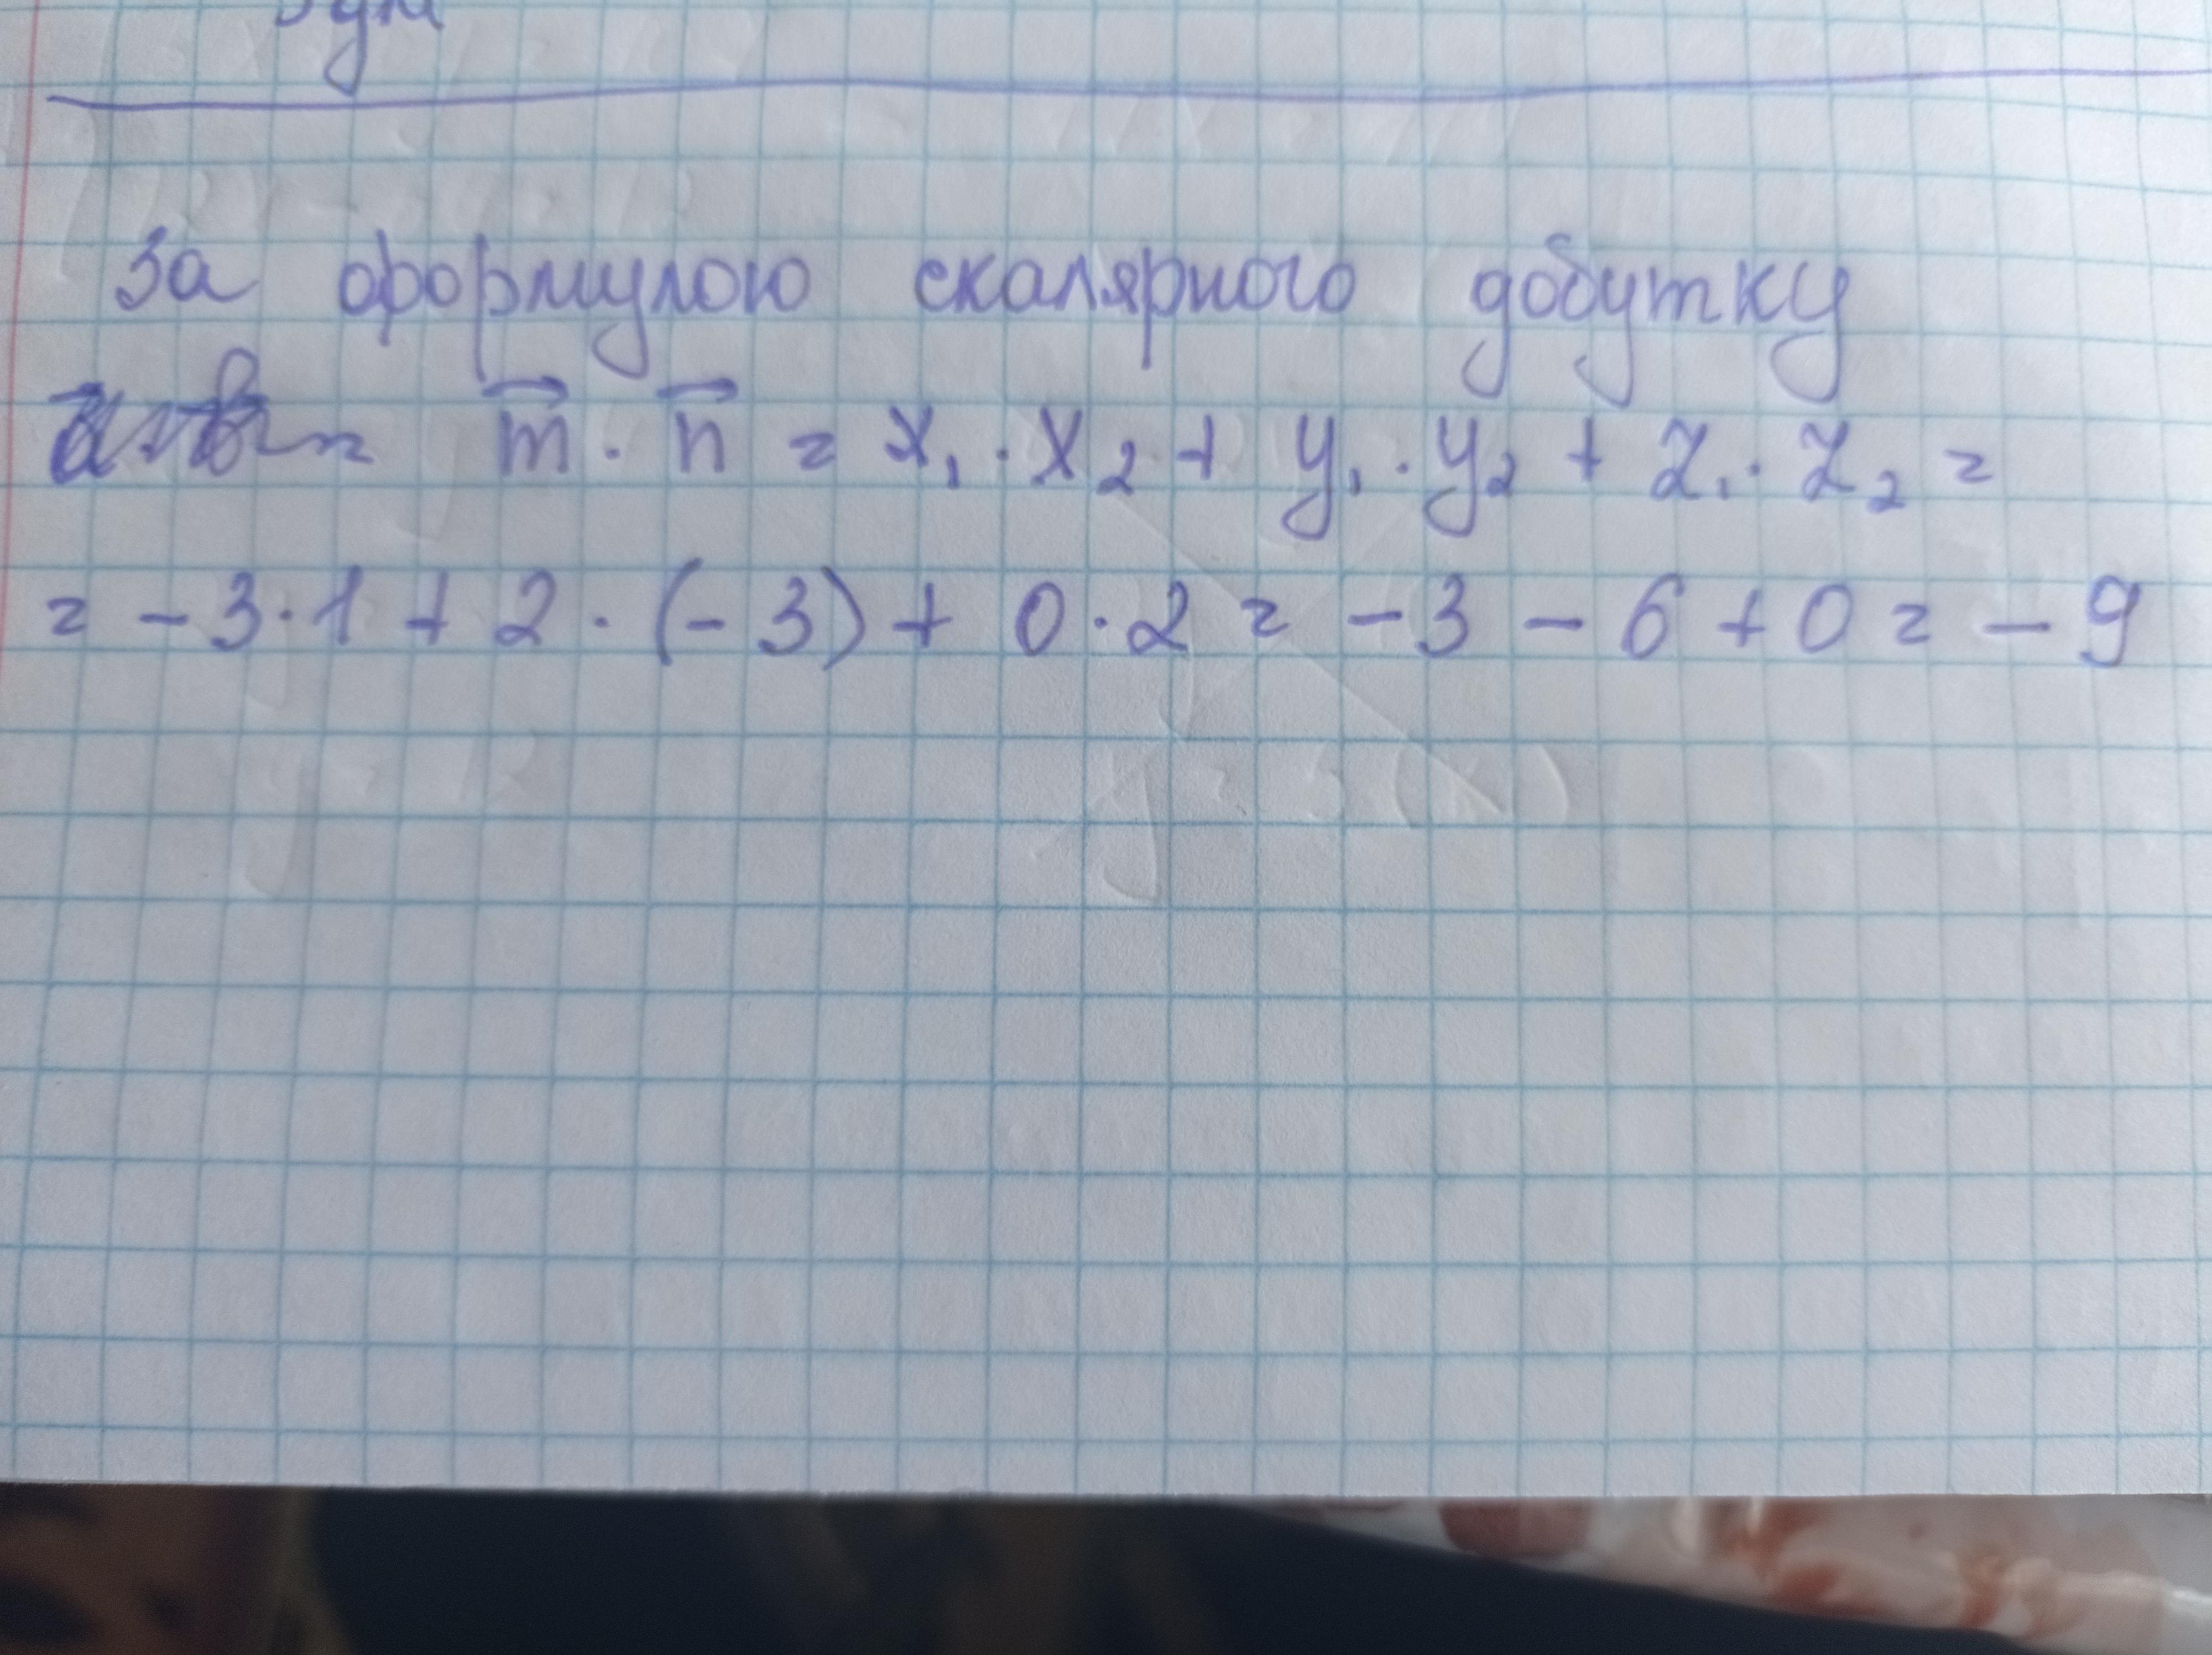 За формулою скалярного добутку
m⃗ · n⃗ = x₁ · x₂ + y₁ · y₂ + z₁ · z₂ =
= - 3 · 1 + 2 · (- 3) + 0 · 2 = - 3 - 6 + 0 = - 9